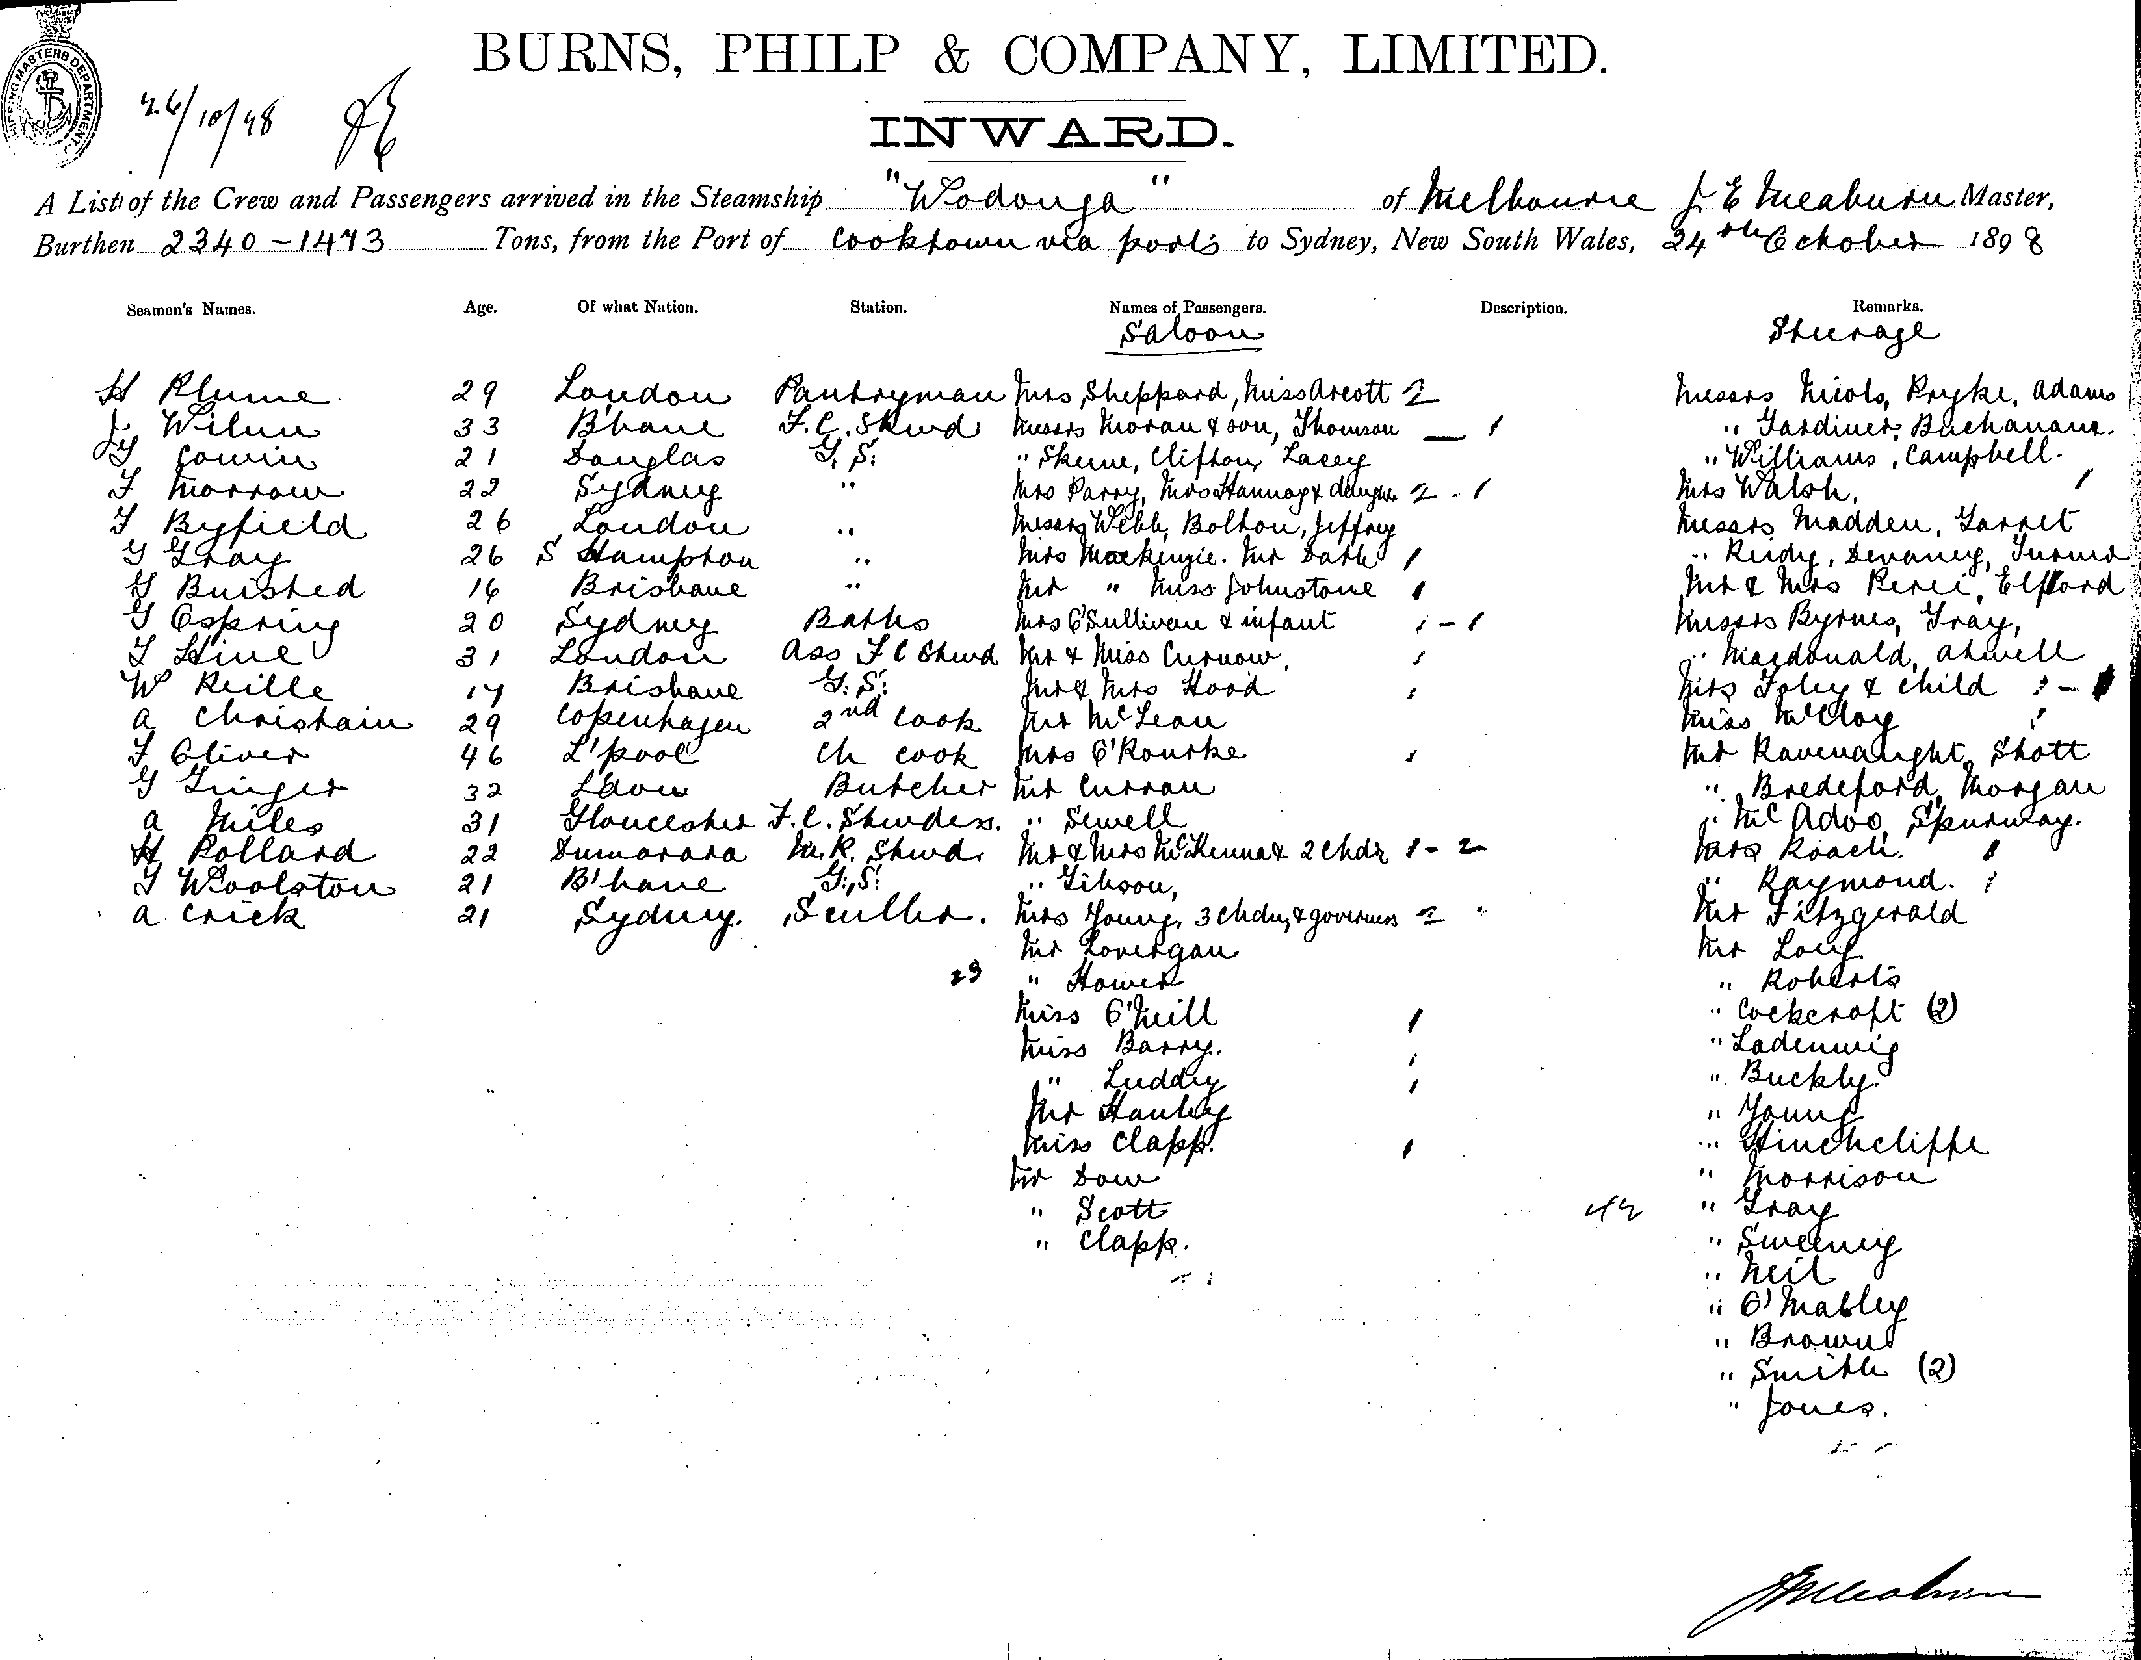 SHIPPING MASTERS DEPARTMENT
26/10/98
BURNS, PHILP & COMPANY, LIMITED.
INWARD.
A List of the Crew and Passengers arrived in the Steamship "Wodonga" of Melbourne J E Meaburn Master,
Burthen 2340 - 1473 Tons, from the Port of Cooktown via ports to Sydney, New South Wales, 24th October 1898
Seamen's Names. Age. Of what Nation. Station. Names of Passengers. Description. Remarks.
Saloon Steerage
H Plume 29 London Pantryman Mrs Sheppard, Miss Arcott 2 Messrs Nicols, Pryke, Adams
J Wilun 33 B'bane F.C. Stewd Messrs Moran & son, Thomson — 1 " Gardiner, Buchanan.
Cowin 21 Douglas G.S. " Skene, Clifton, Lacey " Williams, Campbell.
T Morrow 22 Sydney " Mrs Parry, Mrs Hannay & daughter 2 - 1 Mrs Walsh, 1
T Byfield 26 London " Messrs Webb, Bolton, Jeffrey Messrs Madden, Garret
G Gray 26 S Hampton " Mrs Mackenzie. Mr Dath 1 " Reidy, Devaney, Turner
H Buisted 16 Brisbane " Mr " Miss Johnstone 1 Mr & Mrs Perei, Elfford
G Ospring 20 Sydney Baths Mrs O'Sullivan & infant 1 - 1 Messrs Byrnes, Gray,
T Hine 31 London Ass F C Stewd Mr & Miss Curnow, 1 " Macdonald, Atwell
W Reille 17 Brisbane G.S. Mr & Mrs Hood 1 Mrs Foley & child 1 - 1
A Christain 29 Copenhagen 2nd Cook Mr McLean Miss McCloy 1
F Oliver 46 L'pool Ch Cook Mrs O'Rourke 1 Mr Kavenaught, Stott
G Ginger 32 Butcher Mr Curran " Bredeford, Morgan
A Miles 31 Gloucester F.C. Stewdess. " Sewell " McAdoo, Spurway.
H Pollard 22 Dumarara M.R. Stewd. Mr & Mrs McKenna & 2 Chdr 1 - 2 Mrs Roach. 1
T Woolston 21 B'bane G.S. " Gibson, " Raymond. 1
A Crick 21 Sydney. Sculler. Mrs Young, 3 Chdn, & governess 2 " Mr Fitzgerald
Mr Lovergan Mr Long
" Hower " Roberts
Miss O'Neill 1 " Cockcroft (2)
Miss Barry. 1 " Ladenwig
" Luddy 1 " Buckly.
Mr Hanley " Young
Miss Clapp. 1 " Hinchcliffe
Mr Dow " Morrison
" Scott 42 " Gray
" Clapp. " Sweeney
" Neil
" O'Malley
" Brown
" Smith (2)
" Jones.